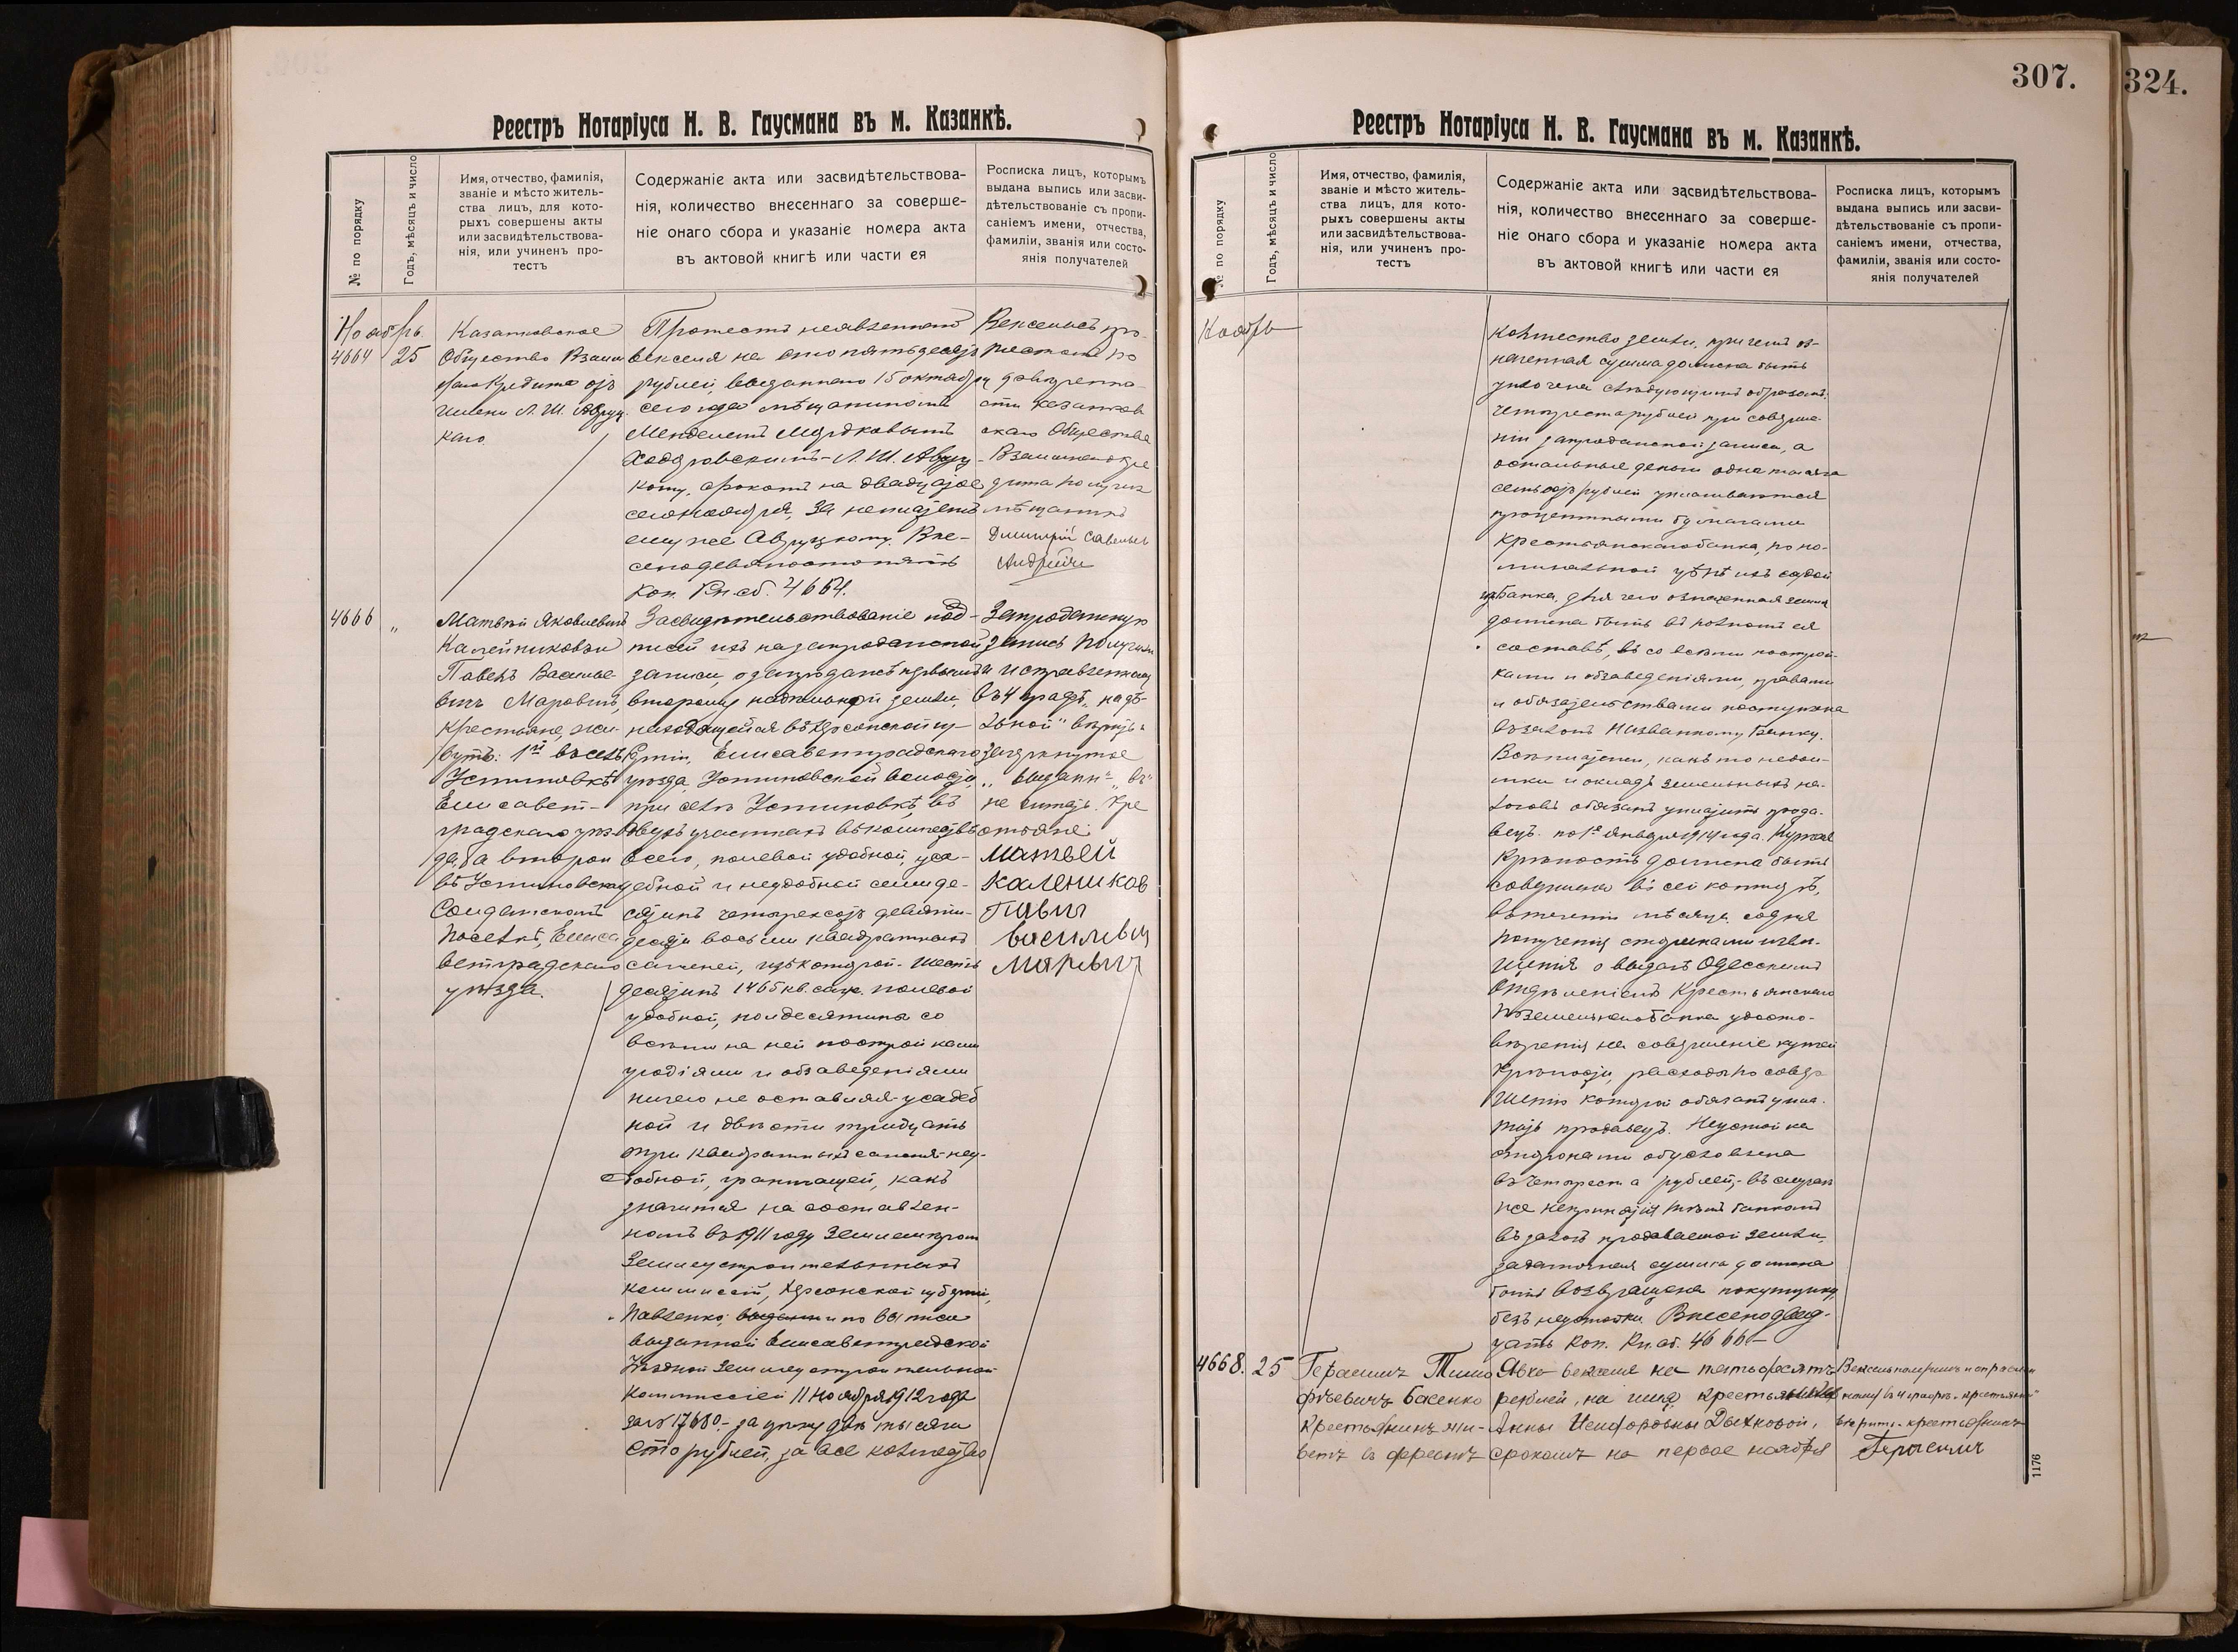 Реестръ Нотаріуса Н. В. Гаусмана въ м. Казанкѣ.
№ по порядку
Годъ, мѣсяцъ и число
Имя, отчество, фамилія,
званіе и мѣсто житель-
ства лицъ, для кото-
рыхъ совершены акты
или засвидѣтельствова-
нія, или учиненъ про-
тестъ
Содержаніе акта или засвидѣтельствова-
нія, количество внесеннаго за соверше-
ніе онаго сбора и указаніе номера акта
въ актовой книгѣ или части ея
Росписка лицъ, которымъ
выдана выпись или засви-
дѣтельствованіе съ пропи-
саніемъ имени, отчества,
фамиліи, званія или состо-
янія получателей
Ноябрь
4664 25
Казанковское
Общество Взаим
наго Кредита отъ
имени Л. Ш. Авруц
каго
Протестъ неявленнаго
векселя на сто пятьдесятъ
рублей, выданнаго 15 октября
сего года мѣщаниномъ
Менделемъ
Л. Ш. Авруц
кому, срокомъ на двадцатое
сего ноября, за неплатежъ
ему же Авруцкому. Вне-
сено девяносто пять
коп. Кн. об. 4664.
Вексель съ про-
тестомъ по
довѣренно-
сти Казанков
скаго Общества
Взаимнаго Кре
дита получилъ
мѣщанинъ
Дмитрій Савельев
4666 "
Матвѣй Яковлевичъ
Калейниковъ и
Павелъ Василье
вичъ Маровичъ,
крестьяне, жи-
вутъ: 1й въ селѣ
Устиновкѣ
Елисавет-
градскаго уѣз-
да, а второй
въ Устиновском
Солдатскомъ
поселкѣ, Елиса
ветградскаго
уѣзда.
Засвидѣтельствованіе под-
писей ихъ на запродажной
записи, о запродажѣ первымъ
второму надѣльной земли,
находящейся въ Херсонской гу-
берніи, Елисаветградскаго
уѣзда, Устиновской волости,
при селѣ Устиновкѣ, въ
двухъ участкахъ въ количествѣ
всего, полевой удобной, уса-
дебной и неудобной семи де-
сятинъ четырехсотъ девяти-
десяти восьми квадратныхъ
саженей, изъ которой - шесть
десятинъ 1465 кв. саж. полевой
удобной, полдесятины со
всѣми на ней постройками
угодіями и обзаведеніями
ничего не оставляя - усадеб
ной и двѣсти тридцать
три квадратныхъ сажени неу-
добной, граничащей, какъ
значится на составлен-
номъ въ 1911 году землемѣром
Землеустроительныхъ
комиссій, Херсонской губерніи,
Павленко, и по выписи
выданной Елисаветградской
Уѣздной Землеустроительной
Коммиссіей 11 ноября 1912 года
за № 17680 - за цѣну двѣ тысячи
сто рублей, за все количество
Запродажную
запись получили
и исправленному
въ 4 графѣ „надѣ-
льной" вѣрить
зачеркнутое
„выданн"
не читать. Кре
стьяне
Матвей
Калеников
Павил
Васильви
Марвич
307.
Реестръ Нотаріуса Н. В. Гаусмана въ м. Казанкѣ.
№ по порядку
Годъ, мѣсяцъ и число
Имя, отчество, фамилія,
званіе и мѣсто житель-
ства лицъ, для кото-
рыхъ совершены акты
или засвидѣтельствова-
нія, или учиненъ про-
тестъ
Содержаніе акта или засвидѣтельствова-
нія, количество внесеннаго за соверше-
ніе онаго сбора и указаніе номера акта
въ актовой книгѣ или части ея
Росписка лицъ, которымъ
выдана выпись или засви-
дѣтельствованіе съ пропи-
саніемъ имени, отчества,
фамиліи, званія или состо-
янія получателей
Ноябрь
количество земли, причемъ оз-
наченная сумма должна быть
уплочена слѣдующимъ образомъ:
четыреста рублей при соверше-
ніи запродажной записи, а
остальныя деньги одна тысяча
семьсотъ рублей уплачиваются
процентными бумагами
Крестьянскаго банка, по но-
минальной цѣнѣ изъ
банка, для чего означенная земля
должна быть въ полномъ ея
составѣ, со всѣми построй-
ками и обзаведеніями, правами
и обязательствами поступлена
въ залогъ Названному Банку.
Всѣ платежи, какъ то недои-
мки и окладъ земельныхъ на-
логовъ обязанъ уплатить прода-
вецъ по 1е Января 1914 года. Купчая
крѣпость должна быть
совершена въ сей конторѣ,
въ теченіи мѣсяца со дня
полученія сторонами изве-
щенія о выдачѣ Одесскимъ
Отдѣленіемъ Крестьянскаго
Поземельнаго банка удосто-
вѣренія на совершеніе купчей
крѣпости, расходы по совер
шенію которой обязанъ упла-
тить продавецъ. Неустойка
сторонами обусловлена
въ четыреста рублей, - въ случаѣ
же непринятія банкомъ
въ залогъ продаваемой земли,
задаточная сумма должна
быть возвращена покупщику
безъ неустойки. Внесено двад-
цать коп. Кн. об. 4666 -
4668. 25
Герасимъ Тимо
феевичъ Басенко
крестьянинъ жи-
ветъ въ
Явка векселя на пятьдесятъ
рублей, на имя крестьянки
Анны Дычковой,
срокомъ на первое ноября
Вексель получилъ и исправлен
ному въ 4 графѣ „крестьянки"
вѣрить - крестьянинъ
Герасимъ
1176
324.